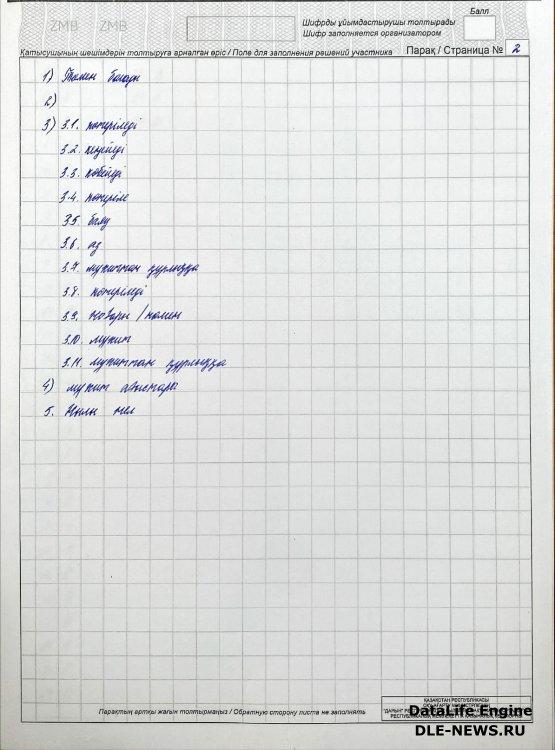 Балл
ZMB ZMB
Шифрды ұйымдастырушы толтырады
Шифр заполняется организатором
Қатысушының шешімдерін толтыруға арналған өріс / Поле для заполнения решений участника
Парақ / Страница № 2
1) Төмен болады
2)
3) 3.1. көтеріледі
3.2. кеңейеді
3.3. көбейеді
3.4. көтеріле
3.5. баяу
3.6. аз
3.7. мұхиттан құрлыққа
3.8. көтеріледі
3.9. жоғары / төмен
3.10. мұхит
3.11. мұхиттан құрлыққа
4) мұхит
5. жел
Парақтың артқы жағын толтырмаңыз / Обратную сторону листа не заполнять
ҚАЗАҚСТАН РЕСПУБЛИКАСЫ
DataLife Engine
DLE-NEWS.RU